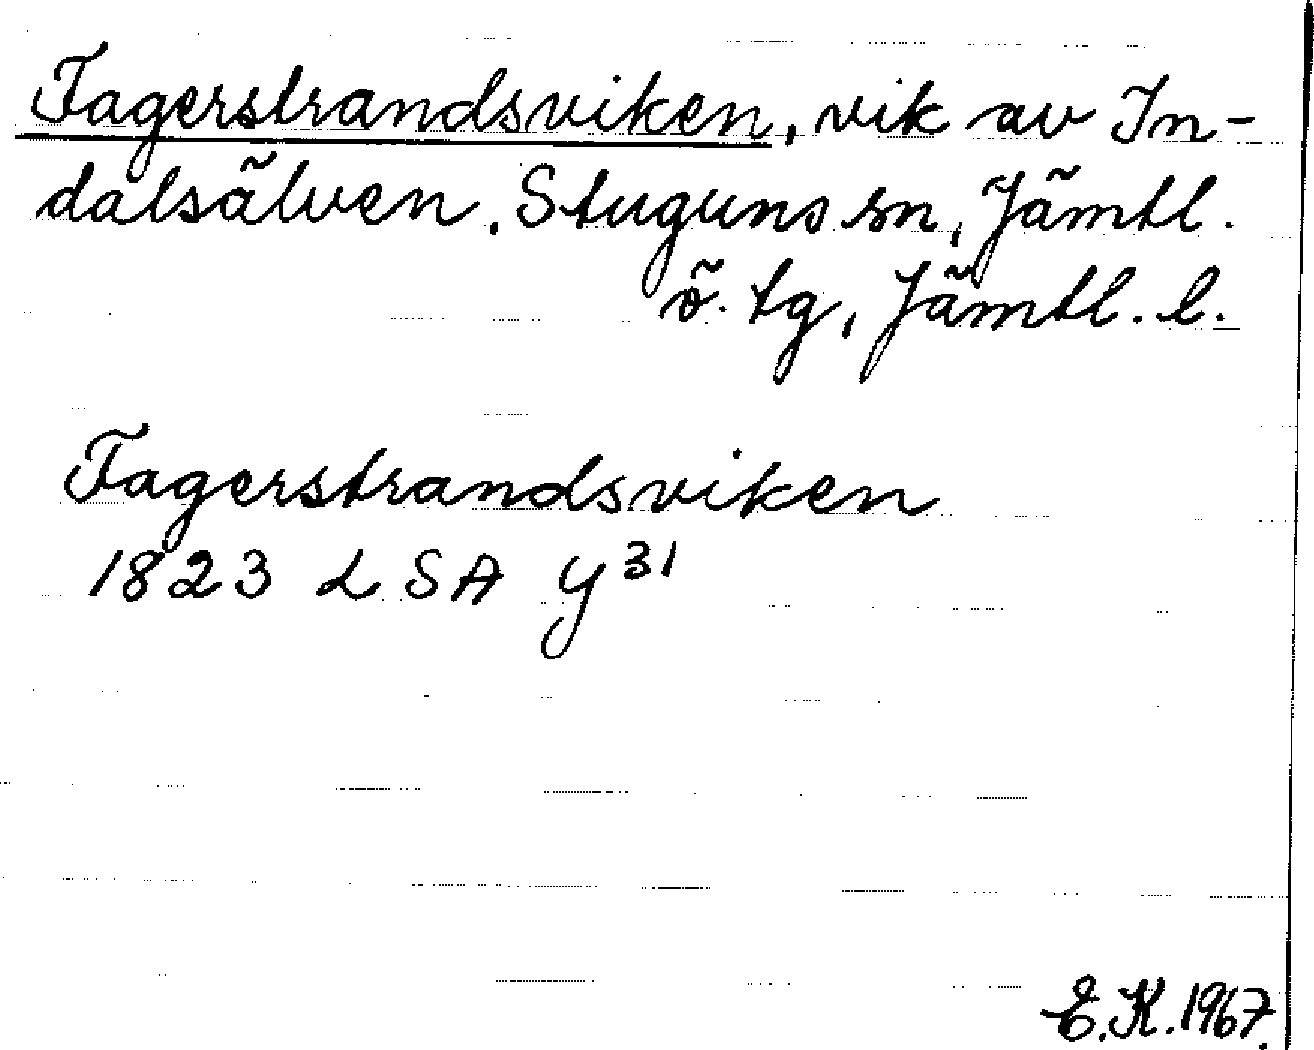 Fagerstrandsviken, vik av In-
dalsälven. Stuguns sn, Jämtl.
ö. tg, Jämtl. l.
Fagerstrandsviken
1823 LSA Y³¹
E.K. 1967.